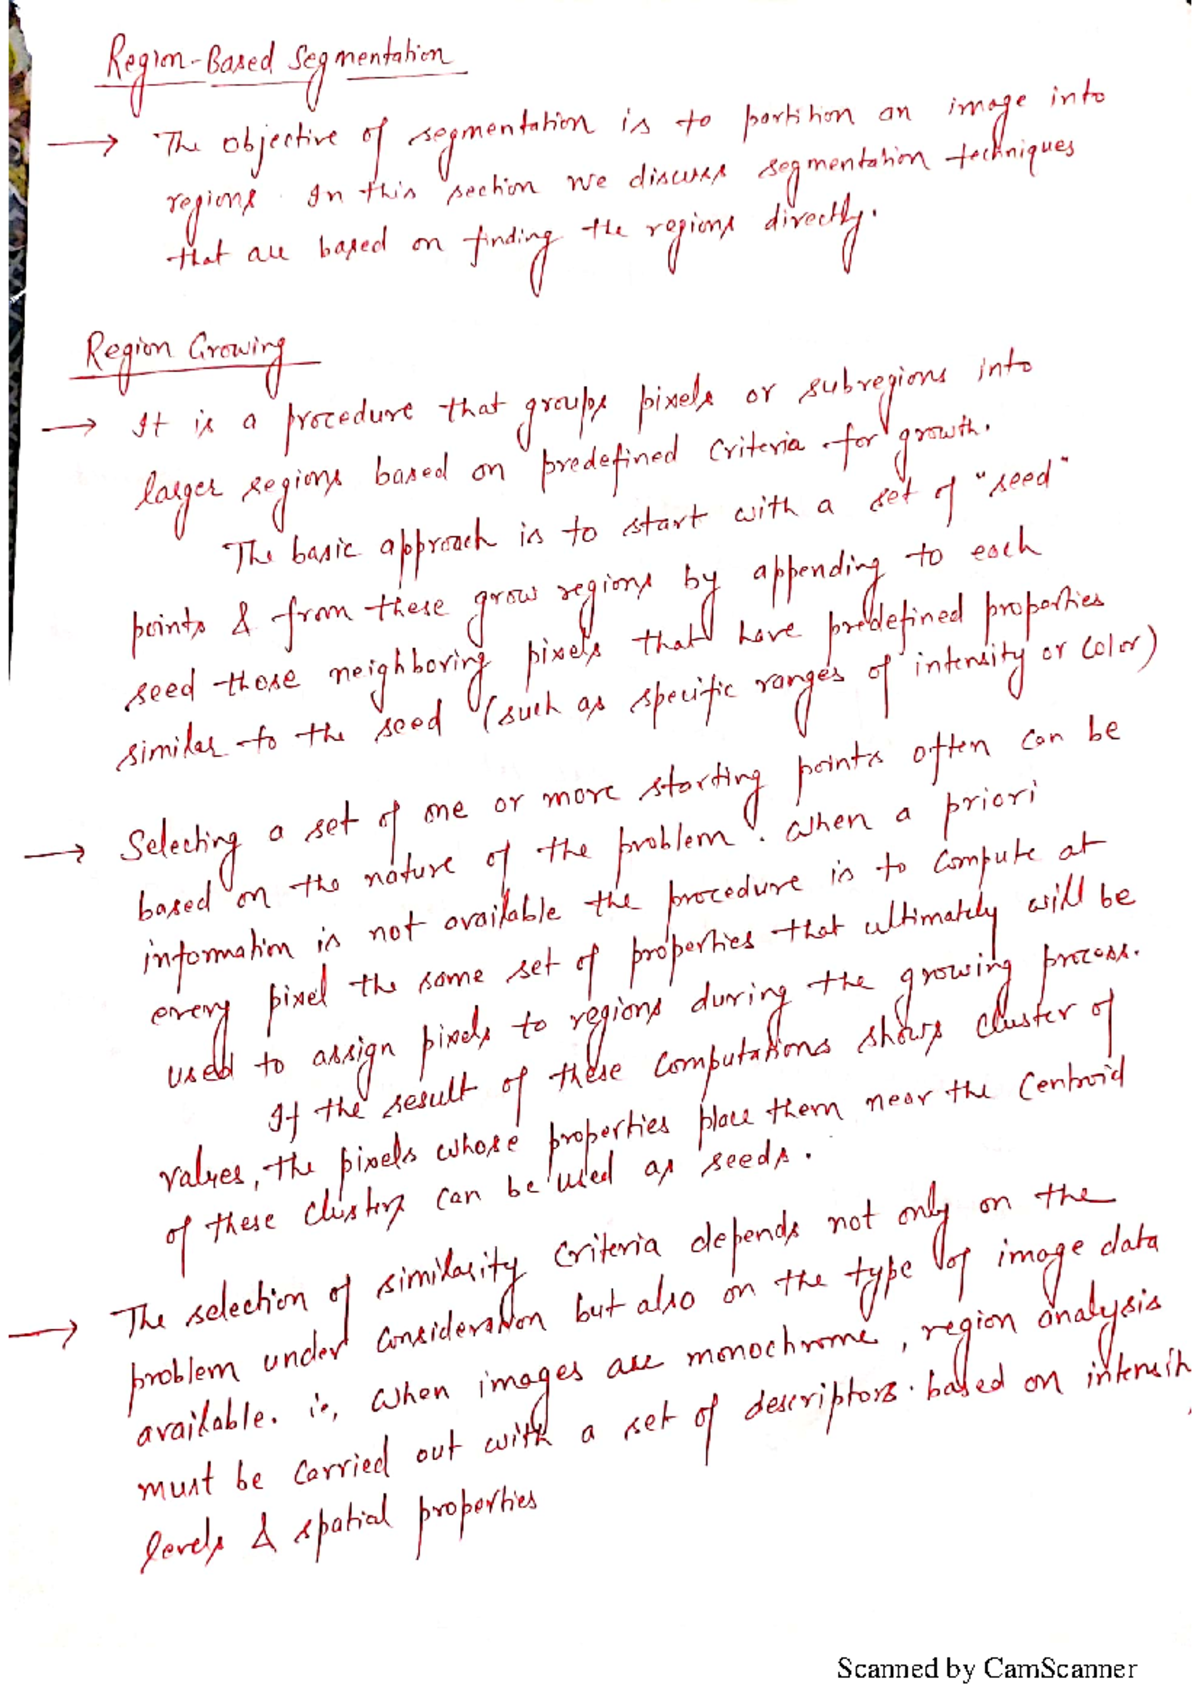 Region-Based Segmentation
→ The objective of segmentation is to partition an image into
regions. In this section we discuss segmentation techniques
that are based on finding the regions directly.
Region Growing
→ It is a procedure that groups pixels or subregions into
larger regions based on predefined criteria for growth.
The basic approach is to start with a set of "seed"
points & from these grow regions by appending to each
seed those neighboring pixels that have predefined properties
similar to the seed (such as specific ranges of intensity or color)
→ Selecting a set of one or more starting points often can be
based on the nature of the problem. When a priori
information is not available the procedure is to compute at
every pixel the same set of properties that ultimately will be
used to assign pixels to regions during the growing process.
If the result of these computations shows cluster of
values, the pixels whose properties place them near the centroid
of these clusters can be used as seeds.
→ The selection of similarity criteria depends not only on the
problem under consideration but also on the type of image data
available. ie, when images are monochrome, region analysis
must be carried out with a set of descriptors based on intensity
levels & spatial properties
Scanned by CamScanner